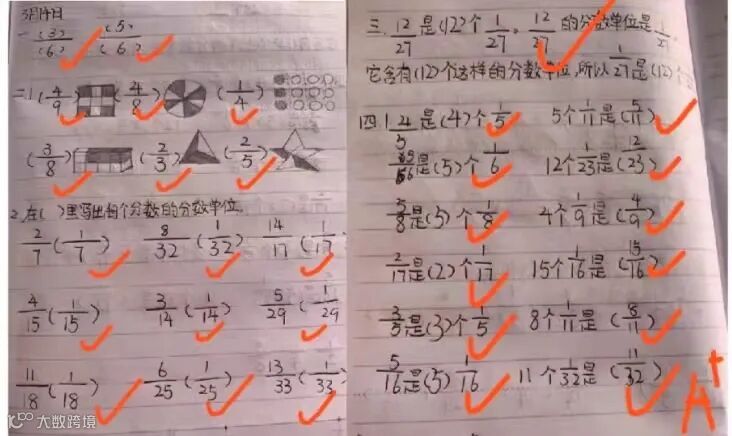 3月14日
一 (3)/(6) (5)/(6)
二.1 (4/9) (4/8) (1/4)
(3/8) (2/3) (2/5)
2.在( )里写出每个分数的分数单位.
2/7 (1/7) 8/32 (1/32) 14/17 (1/17)
4/15 (1/15) 3/14 (1/14) 5/29 (1/29)
11/18 (1/18) 6/25 (1/25) 13/33 (1/33)
大数跨境
三.12/27是(12)个1/27。12/27的分数单位是1/27.
它含有(12)个这样的分数单位,所以 是(12)个
四.1 4/5是(4)个1/5 5个1/11是(5/11)
是(5)个1/6 12个1/23是(12/23)
/8是(3)个1/8 4个1/9是(4/9)
2/17是(2)个1/17 15个1/16是(15/16)
3/5是(3)个1/5 8个1/11是(8/11)
5/16是(5)1/16 11个1/32是(11/32)
A+